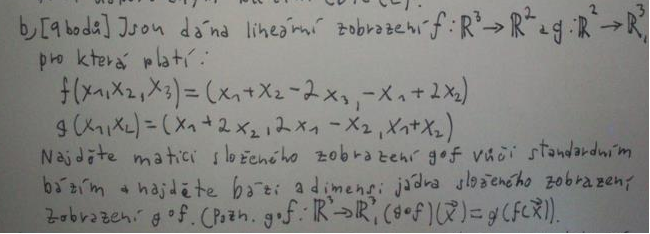 b, [9 bodů] Jsou dána lineární zobrazení f: ℝ³ → ℝ² a g: ℝ² → ℝ³,
pro která platí:
f(x₁, x₂, x₃) = (x₁ + x₂ - 2x₃, -x₁ + 2x₂)
g(x₁, x₂) = (x₁ + 2x₂, 2x₁ - x₂, x₁ + x₂)
Najděte matici složeného zobrazení g∘f vůči standardním
bázím a najděte bázi a dimensi jádra složeného zobrazení
zobrazení g∘f. (Pozn. g∘f: ℝ³ → ℝ³, (g∘f)(x⃗) = g(f(x⃗)).